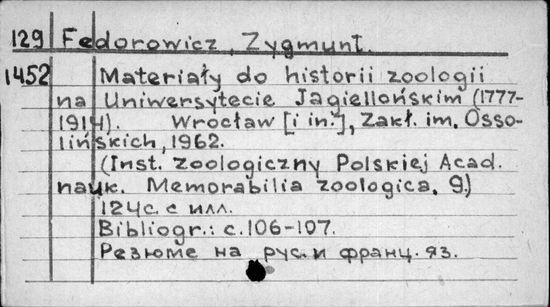 129 Fedorowicz, Zygmunt.
1452 Materiały do historii zoologii
na Uniwersytecie Jagiellońskim (1777-
1914). Wrocław [i in.], Zakł. im. Osso-
lińskich, 1962.
(Inst. zoologiczny Polskiej Acad.
nauk. Memorabilia zoologica. 9.)
124 с. с илл.
Bibliogr.: с. 106-107.
Резюме на рус. и франц. яз.